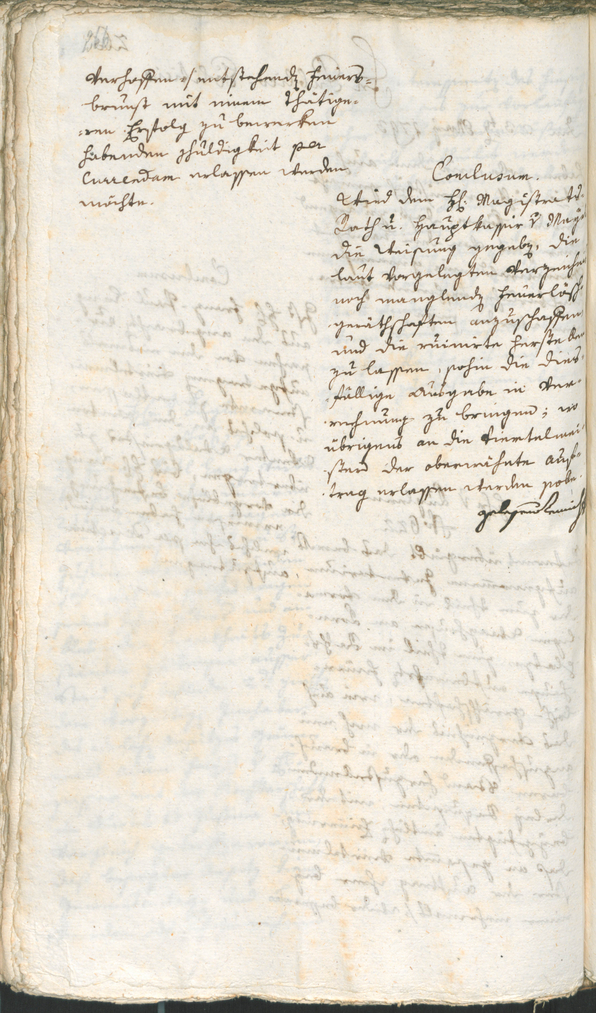 verhoffen entstehendn Feuers-
brunst mit einem thätige-
ren Erfolg zu bewerken
habenden Schuldigkeit per
Currendam erlassen werden
möchte.
Conclusum.
Wird dem H: Magistrats-
Rath u. Hauptkassir v May
die Weisung gegeben, die
laut vorgelegten Verzeichn
noch manglende Feuerlösch
geräthschaften anzuschaffen
und die ruinirte herstellen
zu lassen, sohin die dies-
fällige Ausgabe in Ver-
rechnung zu bringen; wo
übrigens an die Viertelmei-
ster der oberwähnte Auf-
trag erlassen werden solle.